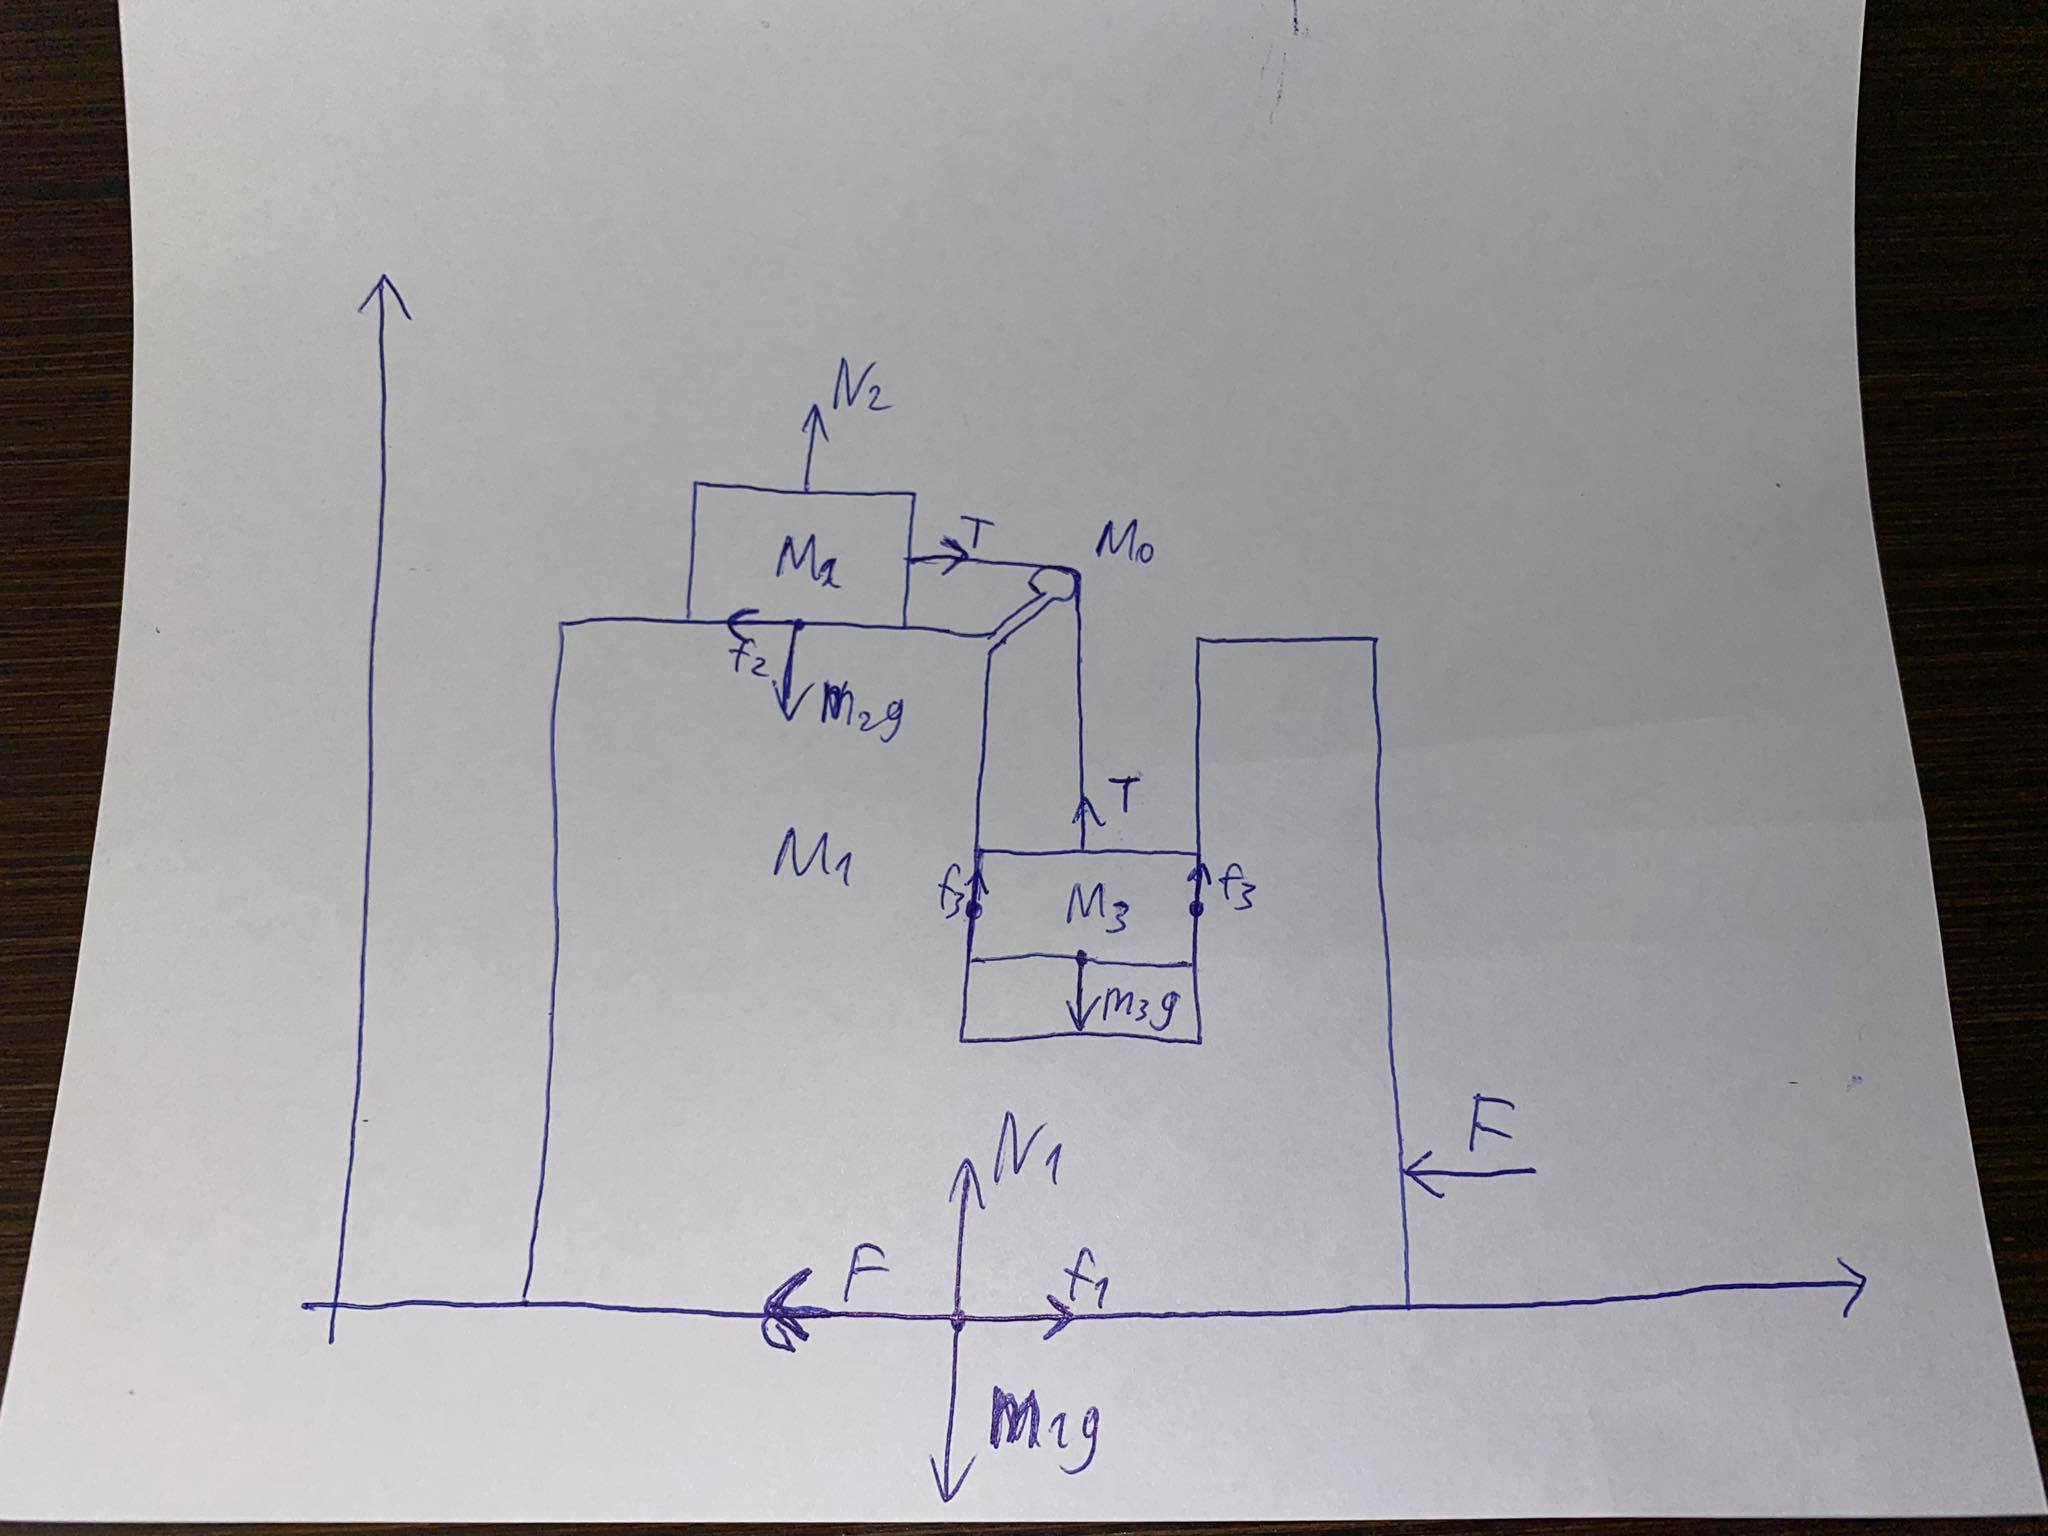 N2
M2
T
M0
f2
m2g
T
M1
f3
M3
f3
m3g
N1
F
F
f1
m1g